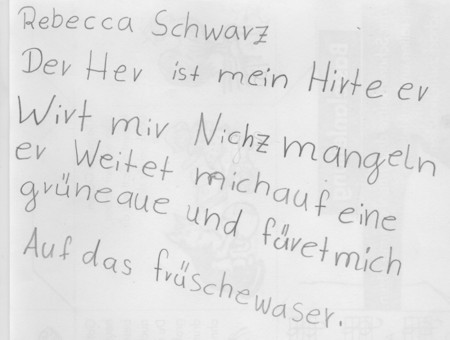 Rebecca Schwarz
Der Her ist mein Hirte er
Wirt mir Nichz mangeln
er Weitet michauf eine
grüneaue und füretmich
Auf das früschewaser.